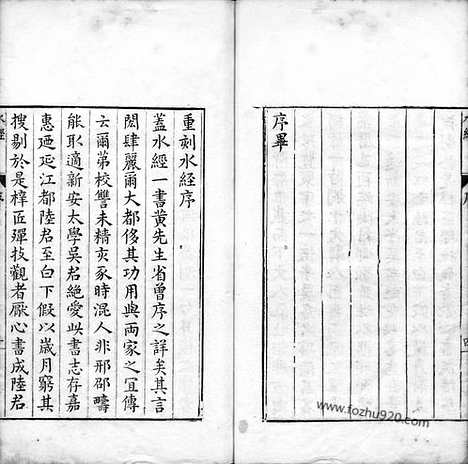 序畢
重刻水經序
蓋水經一書黃先生省曾序之詳矣其言
閎肆麗爾大都侈其功用與兩家之冝傳
云爾第校讐未精亥豕時混人非邢邵疇
能㕥適新安太學吳君絶愛此書志存嘉
惠廼延江都陸君至白下假以歲月窮其
搜剔於是梓匠殫技觀者厭心書成陸君
水經
序
www.fozhu920.com